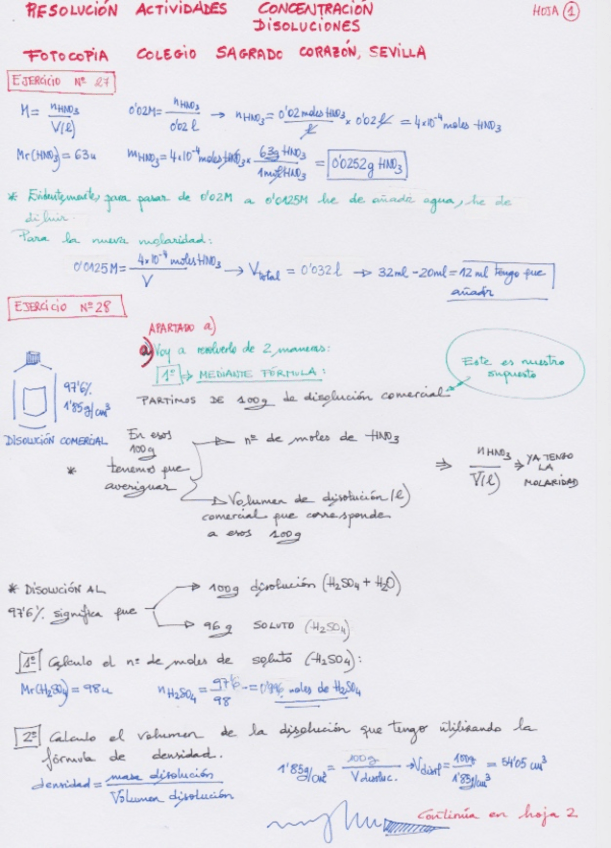 RESOLUCIÓN ACTIVIDADES CONCENTRACIÓN
DISOLUCIONES
HOJA 1
FOTOCOPIA COLEGIO SAGRADO CORAZÓN, SEVILLA
EJERCICIO Nº 27
M = nHNO3 / V(l)   0'02M = nHNO3 / 0'02 l → nHNO3 = 0'02 moles HNO3 / l × 0'02 l = 4×10⁻⁴ moles HNO3
Mr(HNO3) = 63u   mHNO3 = 4×10⁻⁴ moles HNO3 × 63g HNO3 / 1mol HNO3 = 0'0252g HNO3
* Evidentemente, para pasar de 0'02M a 0'0125M he de añadir agua, he de
diluir.
Para la nueva molaridad:
0'0125M = 4×10⁻⁴ moles HNO3 / V → Vtotal = 0'032 l → 32ml - 20ml = 12 ml tengo que
añadir
EJERCICIO Nº 28
APARTADO a)
a) Voy a resolverlo de 2 maneras:
1º ⇒ MEDIANTE FÓRMULA:
Este es nuestro
supuesto
97'6%
1'85g/cm³
PARTIMOS DE 100g de disolución comercial
DISOLUCIÓN COMERCIAL
* En esos
100g
tenemos que
averiguar
→ nº de moles de HNO3
→ Volumen de disolución (l)
comercial que corresponde
a esos 100g
⇒ nHNO3 / V(l) ⇒ YA TENGO
LA
MOLARIDAD
* DISOLUCIÓN AL
97'6% significa que
→ 100g disolución (H2SO4 + H2O)
→ 96 g SOLUTO (H2SO4)
1º Calculo el nº de moles de soluto (H2SO4):
Mr(H2SO4) = 98u   nH2SO4 = 97'6 / 98 = 0'996 moles de H2SO4
2º Calculo el volumen de la disolución que tengo utilizando la
fórmula de densidad.
densidad = masa disolución / Volumen disolución
1'85g/cm³ = 100g / V disoluc. → Vdisol = 100g / 1'85g/cm³ = 54'05 cm³
Continúa en hoja 2